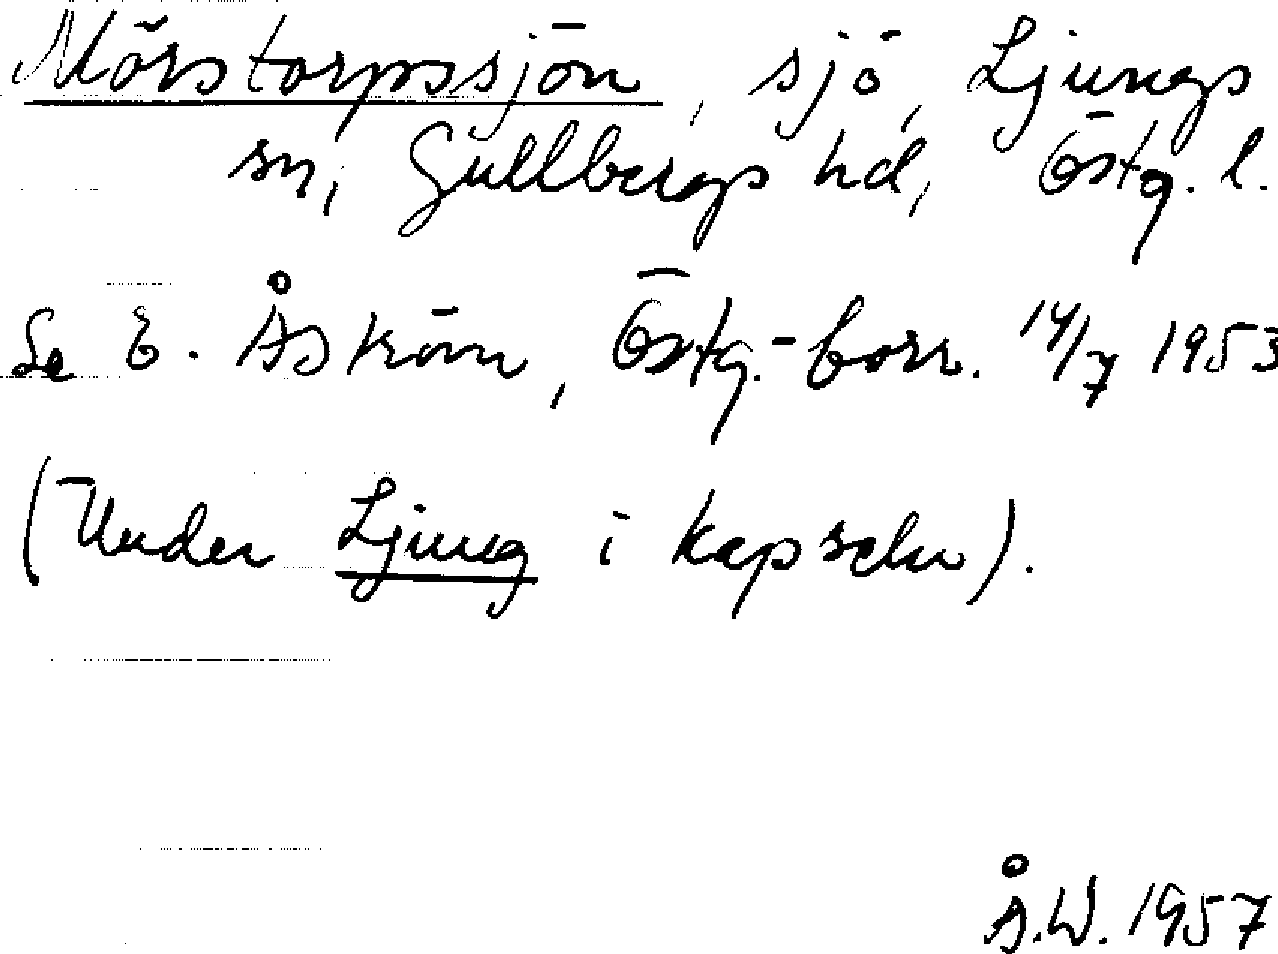 Mörstorpssjön, sjö, Ljungs
sn, Gullbergs hd, Östg. l.
Se E. Åström, Östg.-Corr. 14/7 1953
(Under Ljung i kapseln).
Å.W. 1957